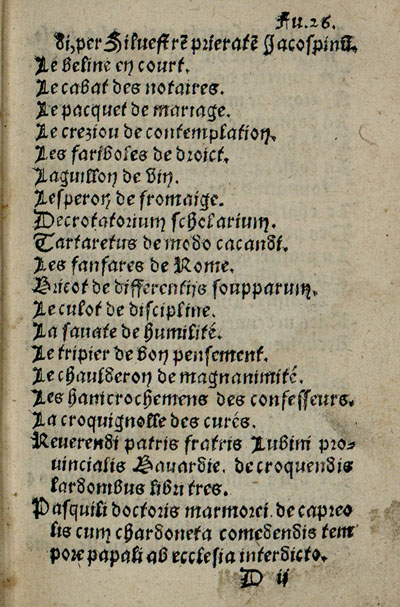 Fu.26.
di, per Siluestrē prieratē Jacospinū.
Le beline en court.
Le cabat des notaires.
Le pacquet de mariage.
Le creziou de contemplation.
Les fariboles de droict.
Laguillon de vin.
Lesperon de fromaige.
Decrotatorium scholarium.
Tartaretus de modo cacandi.
Les fanfares de Rome.
Bricot de differentijs soupparum.
Le culot de discipline.
La sauate de humilité.
Le tripier de bon pensement.
Le chaulderon de magnanimité.
Les hanicrochemens des confesseurs.
La croquignolle des curés.
Reuerendi patris fratris Lubini pro-
uincialis Bauardie. de croquendis
lardonibus libri tres.
Pasquili doctoris marmorei. de capreo
lis cum chardoneta comedendis tem
pore papali ab ecclesia interdicto.
D ij